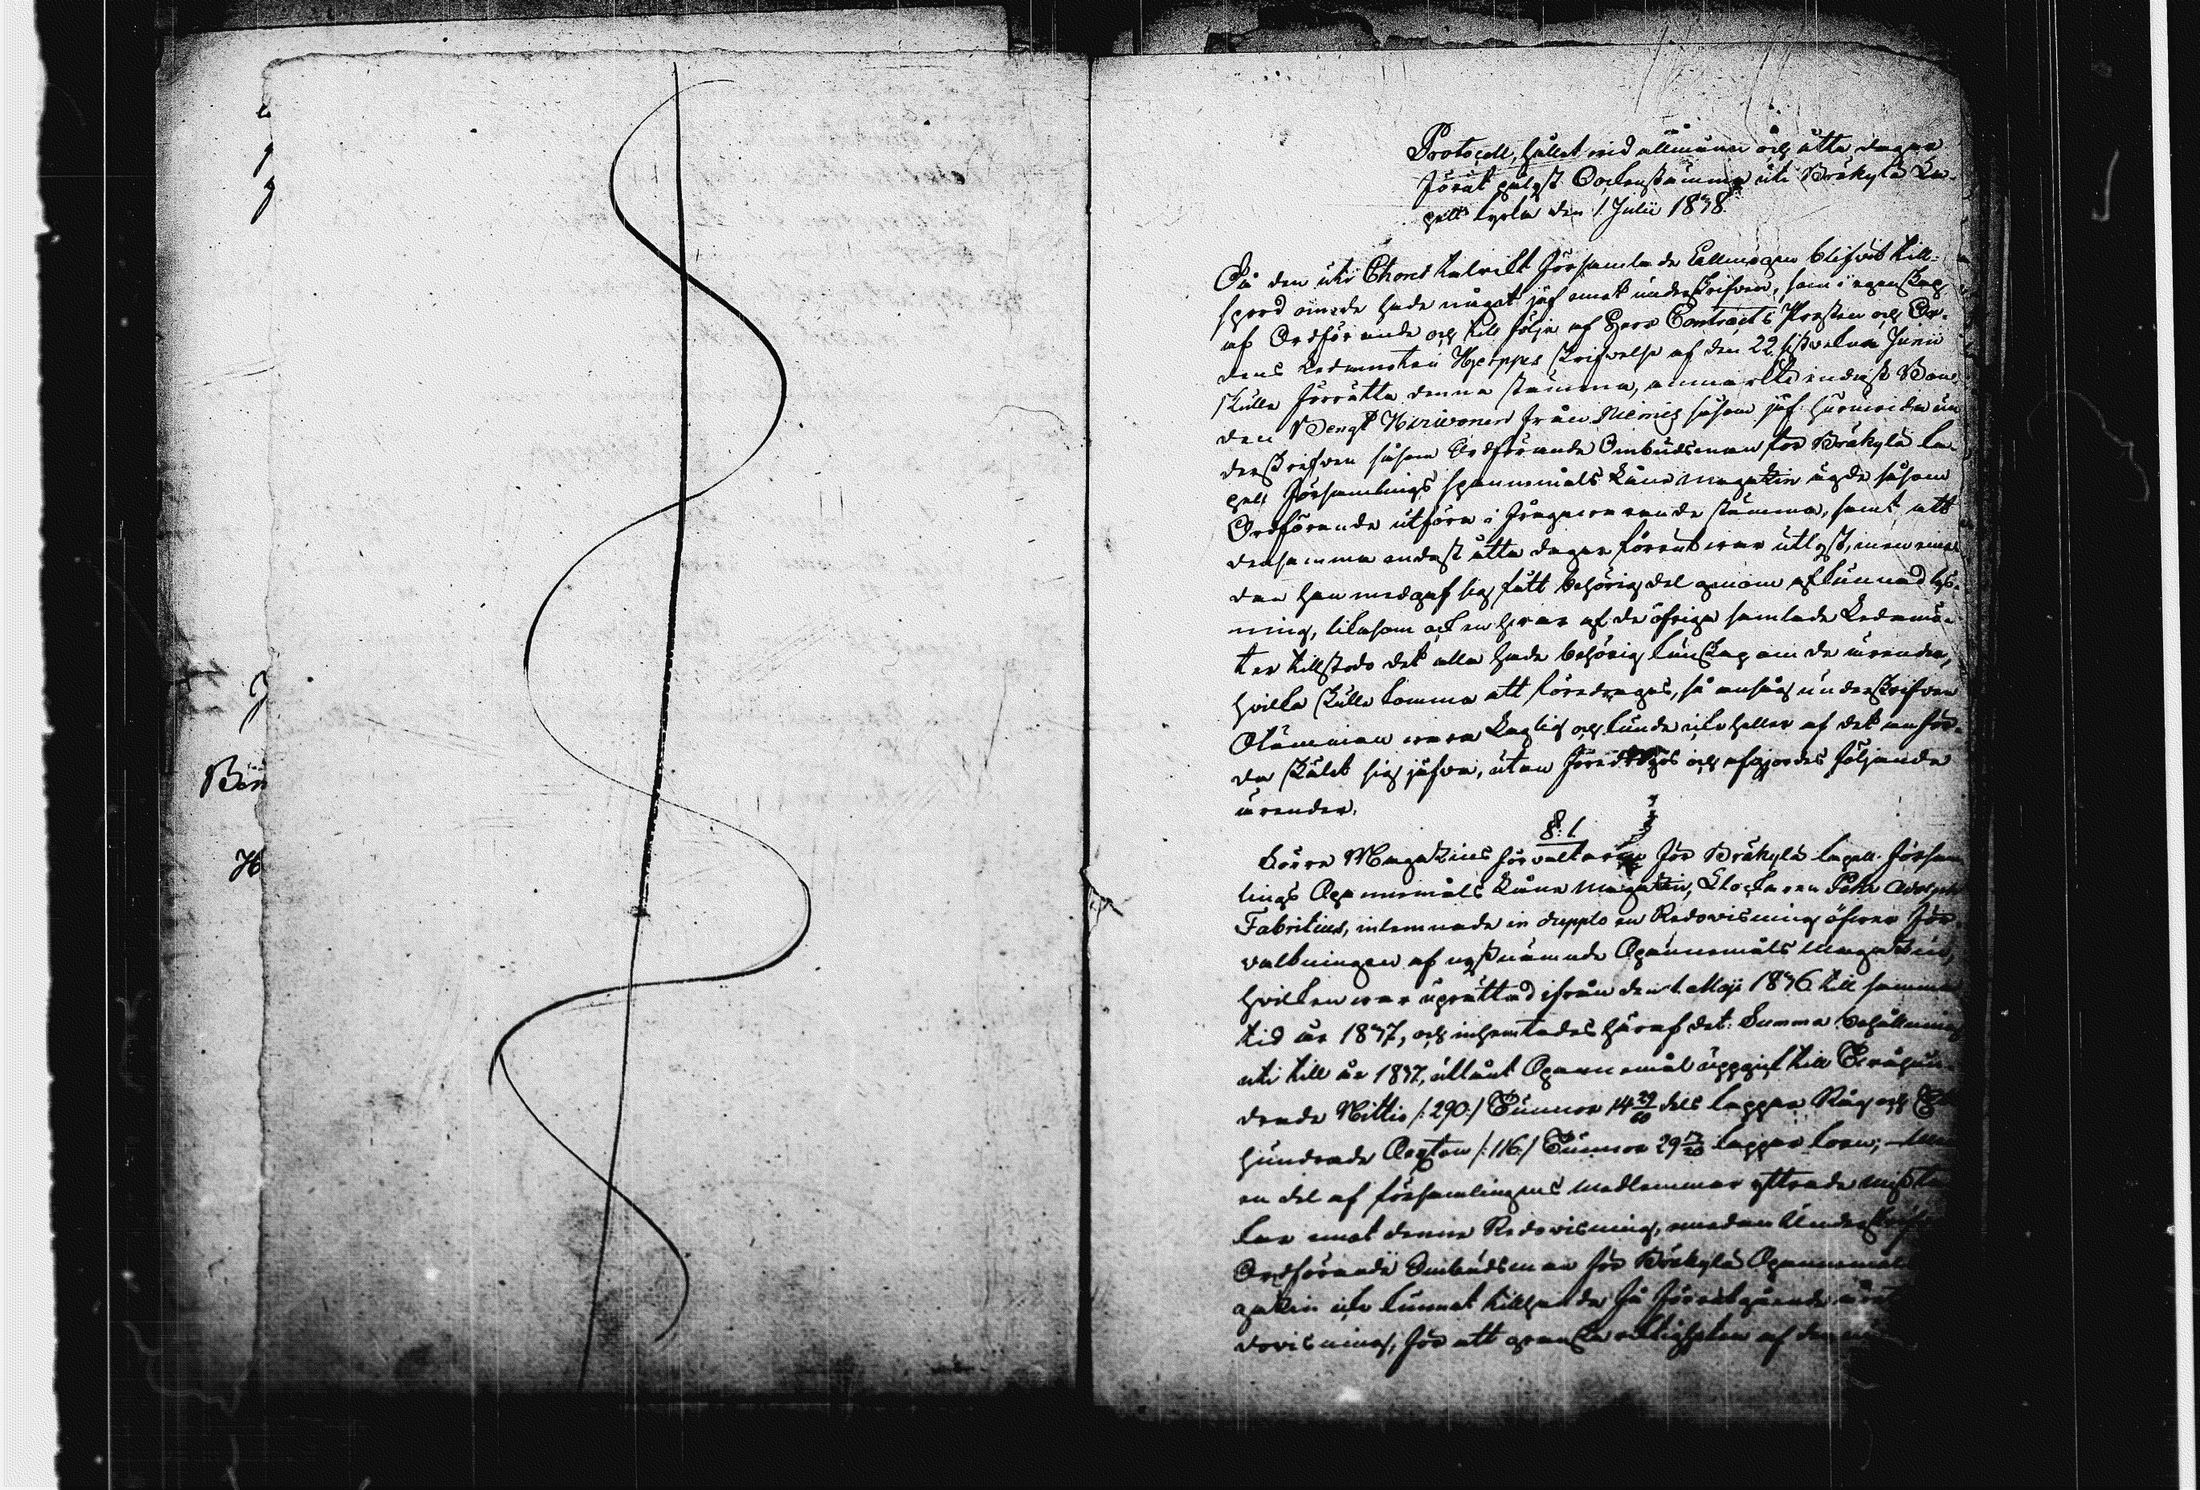 Bön
H
Protocoll, hållet vid allmänn och åtta dagar
förut pålyst Sockenstämma uti Bräkylä Ca-
pells kyrka den 1 Julii 1838.
På den uti Choret talrikt församlade Allmogen blifvit till-
sporde omde hade något jäf emot underskrifven, som i egenskap
af Ordförande och till följe af Herr Contracts Prosten och Or-
dens Ledamoten Hjerppes skrifvelse af den 22 sistvekne Junii
skulle förrätta denna stämma, anmärkte endast Bon-
den Bengt Hirvonen från Niemis såsom jäf häremot da un-
derskrifven såsom Ordförande Ombudsman för Bräkylä Ca-
pell Församlings spannemåls Låne magazin ägde såsom
Ordförande utföra i frågavarande stämma, samt att
densamma endast åtta dagar förrut var utlyst, men eme-
dan han medgaf sig fått behörig del genom afkunnad lys-
ning, likasom ock en hvar af de öfriga samlade Ledamö-
ter tillstodo det alla hade behörig kunskap om de ärender,
hvilka skulle komma att föredragas, så ansåg underskrifven
Stämman vara laglig och kunde icke heller af det anför-
da skälet sig jäfva, utan föredrogos och afgjordes följande
ärender.
§: 1.
Låne Magazins förvaltaren för Bräkylä Capell Försam
lings Spannemåls Låne magazin, Klockaren Pehr Adolph
Fabritius, inlemnade in dupplo en Redovisning öfver för-
valtningen af nyssnämnde Spannemåls Magazin,
hvilken var uprättad ifrån den 1 Maji 1836 till samma
tid år 1837, och inhemtades häraf det: Summa behållning
uti till år 1837, utlånt Spannemål uppgick till Tvåhun-
drade Nittio /:290:/ Tunnor 14 29/60 dels kappar Råg och Ett
hundrade Sexton /:116:/ Tunnor 29 kappar korn; Men
en del af församlingens medlemmar yttrade misstan
kar emot denne Redovisning, emedan Underskrifven
Ordförande Ombudsman för Bräkylä Spannemåls
gazin icke kunnat tillhanda få förutgående årets
dovisning, för att granska riktigheten af den nu